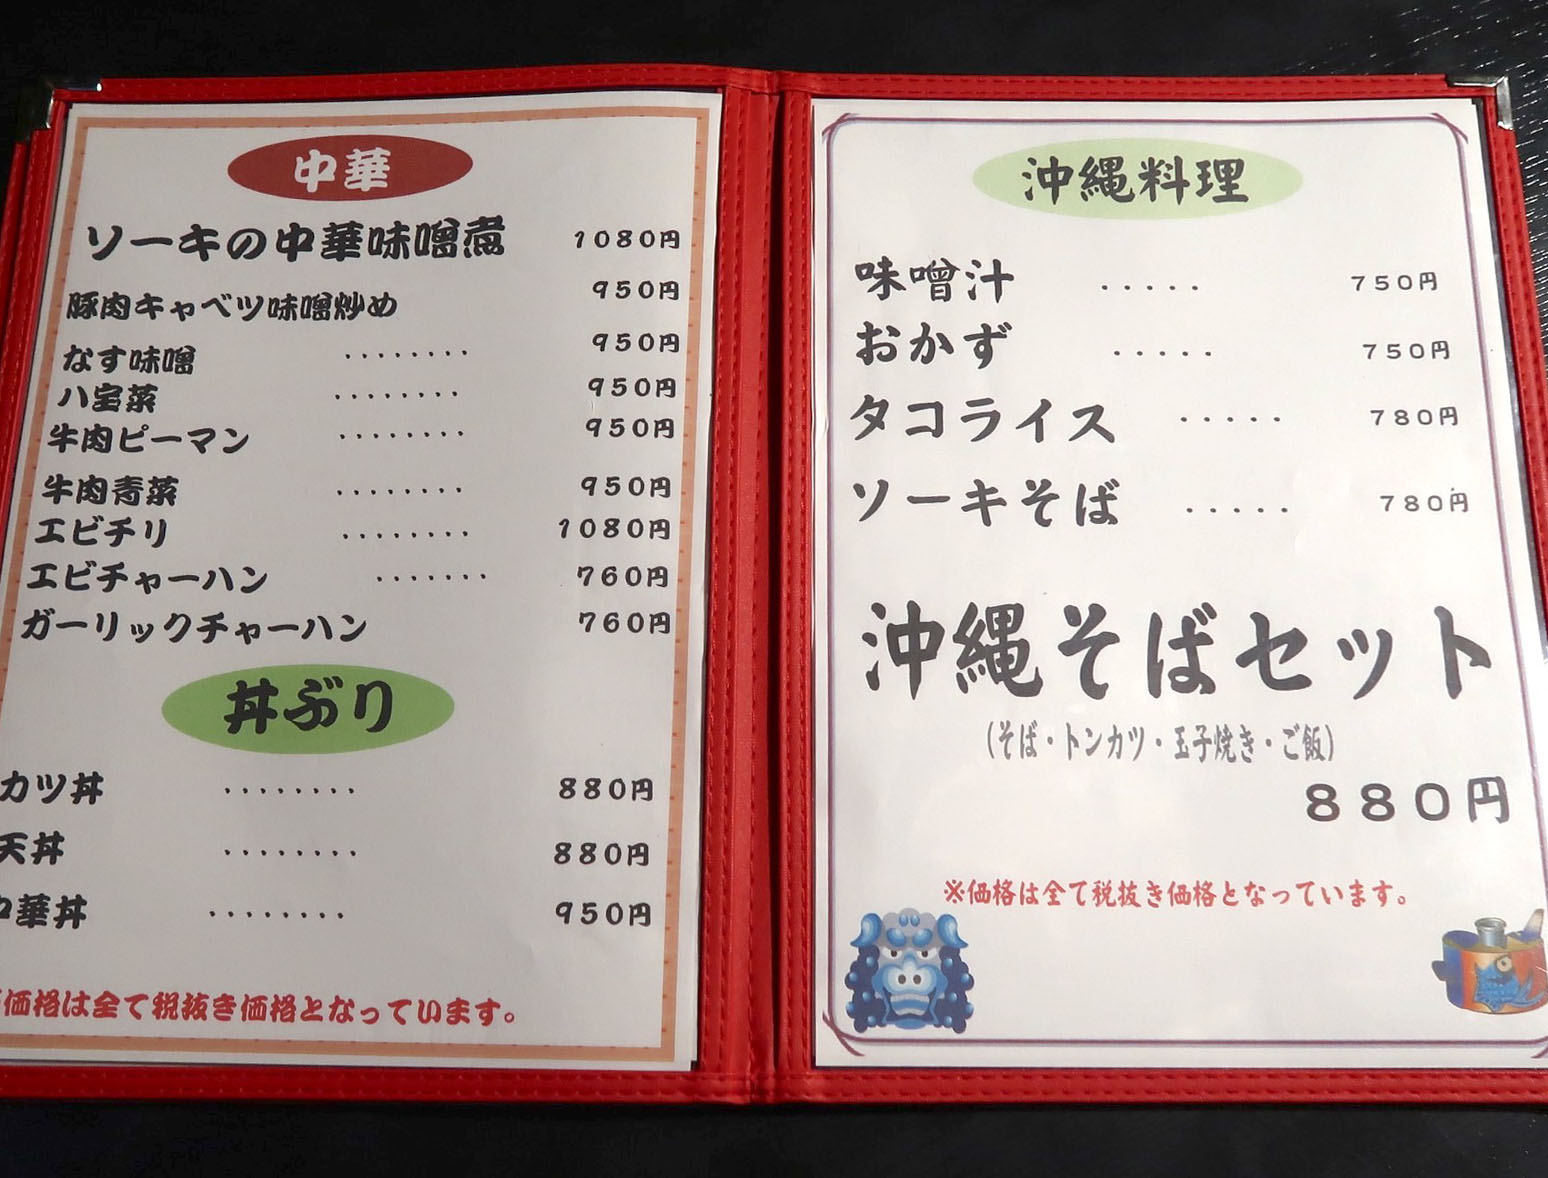 中華
ソーキの中華味噌煮 1080円
豚肉キャベツ味噌炒め 950円
なす味噌 ........ 950円
八宝菜 ........ 950円
牛肉ピーマン ........ 950円
牛肉青菜 ........ 950円
エビチリ ........ 1080円
エビチャーハン ....... 760円
ガーリックチャーハン 760円
丼ぶり
カツ丼 ........ 880円
天丼 ........ 880円
中華丼 ........ 950円
価格は全て税抜き価格となっています。
沖縄料理
味噌汁 ..... 750円
おかず ..... 750円
タコライス ..... 780円
ソーキそば ..... 780円
沖縄そばセット
(そば・トンカツ・玉子焼き・ご飯)
880円
※価格は全て税抜き価格となっています。